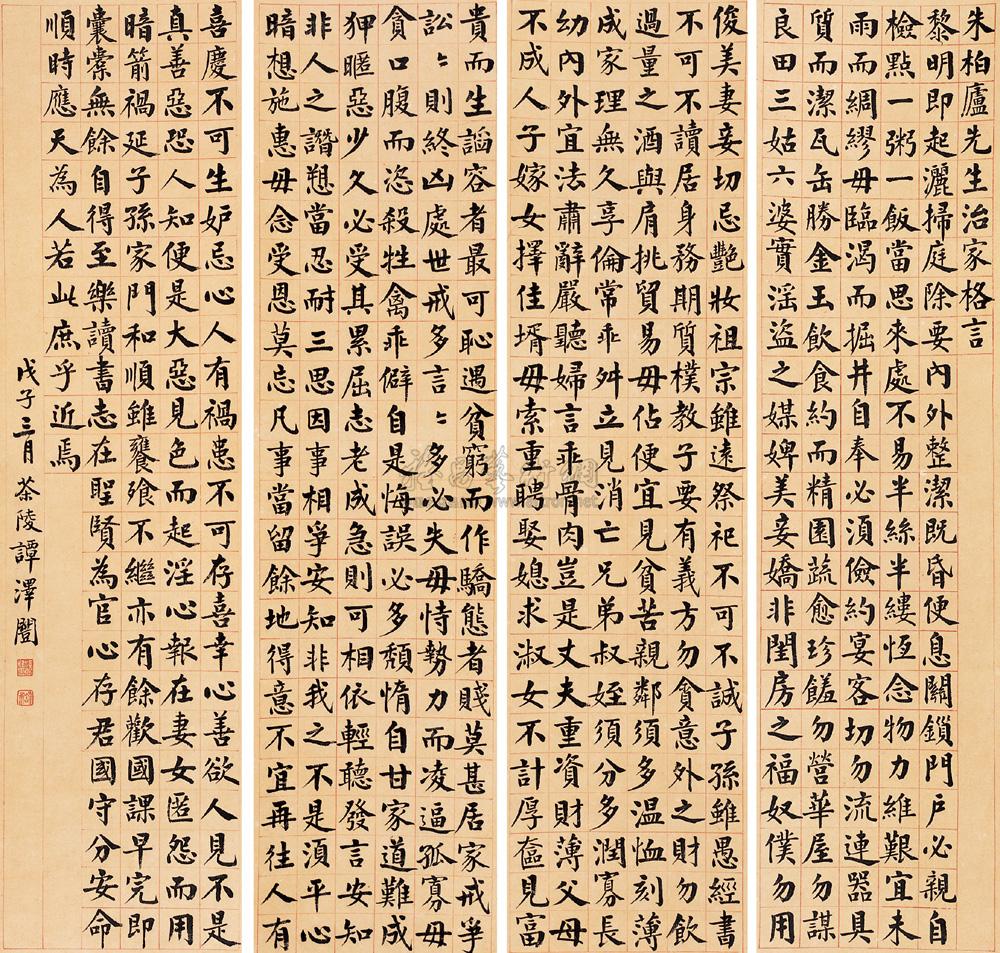 朱柏廬先生治家格言
黎明即起灑掃庭除要內外整潔既昏便息關鎖門戶必親自
檢點一粥一飯當思來處不易半絲半縷恆念物力維艱宜未
雨而綢繆毋臨渴而掘井自奉必須儉約宴客切勿流連器具
質而潔瓦缶勝金玉飲食約而精園蔬愈珍饈勿營華屋勿謀
良田三姑六婆實淫盜之媒婢美妾嬌非閨房之福奴僕勿用
俊美妻妾切忌艷妝祖宗雖遠祭祀不可不誠子孫雖愚經書
不可不讀居身務期質樸教子要有義方勿貪意外之財勿飲
過量之酒與肩挑貿易毋佔便宜見貧苦親鄰須多溫恤刻薄
成家理無久享倫常乖舛立見消亡兄弟叔姪須分多潤寡長
幼內外宜法肅辭嚴聽婦言乖骨肉豈是丈夫重資財薄父母
不成人子嫁女擇佳壻毋索重聘娶媳求淑女不計厚奩見富
貴而生諂容者最可恥遇貧窮而作驕態者賤莫甚居家戒爭
訟々則終凶處世戒多言々多必失毋恃勢力而凌逼孤寡毋
貪口腹而恣殺牲禽乖僻自是悔誤必多頹惰自甘家道難成
狎暱惡少久必受其累屈志老成急則可相依輕聽發言安知
非人之譖愬當忍耐三思因事相爭安知非我之不是須平心
暗想施惠毋念受恩莫忘凡事當留餘地得意不宜再往人有
喜慶不可生妒忌心人有禍患不可存喜幸心善欲人見不是
真善惡恐人知便是大惡見色而起淫心報在妻女匿怨而用
暗箭禍延子孫家門和順雖饔飱不繼亦有餘歡國課早完即
囊橐無餘自得至樂讀書志在聖賢為官心存君國守分安命
順時應天為人若此庶乎近焉
戊子三月茶陵譚澤闓